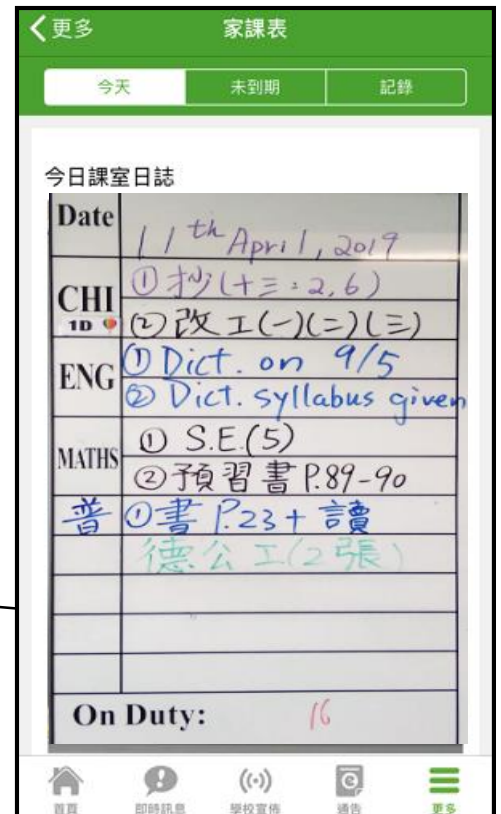 更多 家課表
今天 未到期 記錄
今日課室日誌
Date 11th April, 2019
CHI ①抄(十三:2,6)
1D ②改工(一)(二)(三)
ENG ①Dict. on 9/5
②Dict. syllabus given
MATHS ① S.E.(5)
②預習書P.89-90
普 ①書P.23+讀
德公工(2張)
On Duty: 16
首頁 即時訊息 學校宣佈 通告 更多